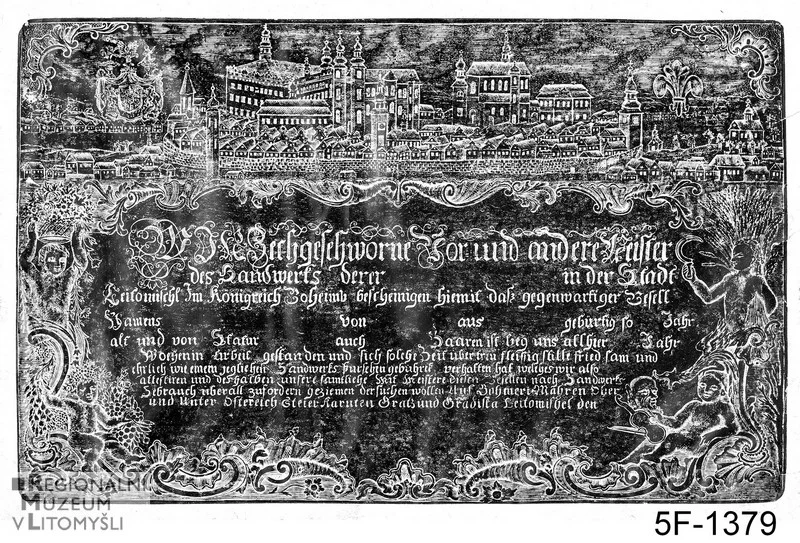 WIR Zechgeschworne Vor und andere Meister
des Handwercks derer in der Stadt
Leitomischl Im Königreich Boheimb bescheinigen hiemit daß gegenwartiger Gesell
Namens von aus gebürtig so Jahr
alt und von Statur auch Haaren ist bey uns allhier Jahr
Wochen in Arbeit gestanden und sich solche Zeit über treu fleissig stille fried sam und
ehrlich wie einem jeglichen Handwercks Purschen gebühret verhalten hat welches wir also
attestiren und deshalben unsere samtliche Mit Meistere diesen Gesellen nach Handwercks
Gebrauch überall zufordern geziemen der suchen wollen Aus Böhmen Mähren Ober
und Unter Östereich Steier Karnten Gratz und Gradista Leitomischel den
REGIONÁLNÍ
MUZEUM
V LITOMYŠLI
5F-1379